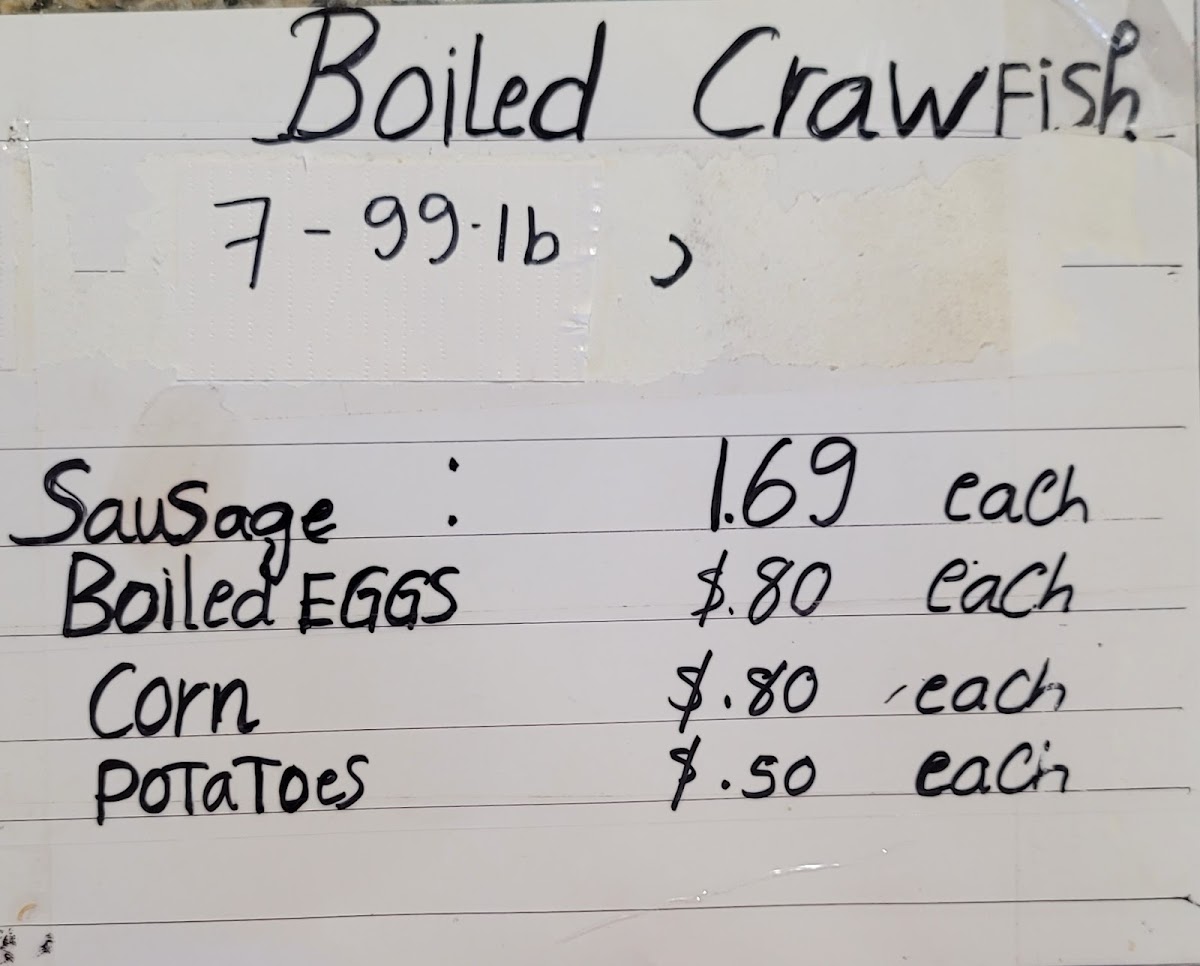 Boiled CrawFish
7-99.lb ,
Sausage : 1.69 each
Boiled EGGS $.80 each
Corn $.80 each
POTaToes $.50 each